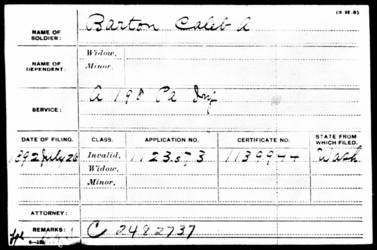 (3-H.B)
NAME OF SOLDIER: Barton Caleb A
NAME OF DEPENDENT: Widow,
Minor.
SERVICE: A 198 Pa Inf
DATE OF FILING. CLASS. APPLICATION NO. CERTIFICATE NO. STATE FROM WHICH FILED.
1892 July 26 Invalid, 1123.573 1139944 Wash
Widow,
Minor.
ATTORNEY:
REMARKS: C 2482737